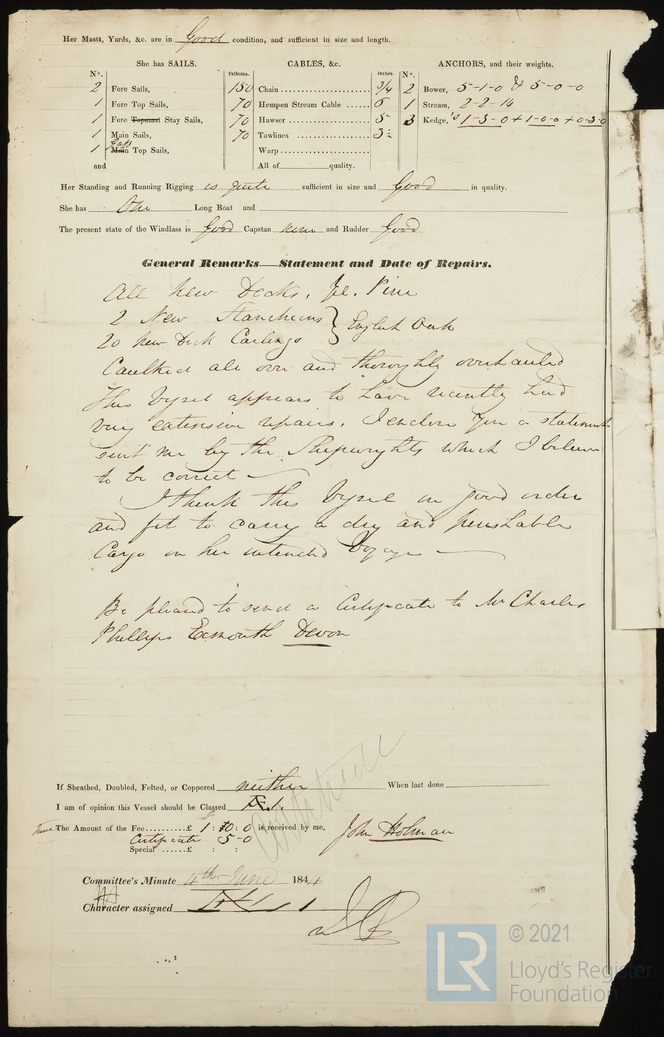 Her Masts, Yards, &c. are in Good condition, and sufficient in size and length.
She has SAILS.
CABLES, &c.
ANCHORS, and their weights.
No.
Fathoms.
Inches.
No.
2 Fore Sails,
150 Chain 3/4
2 Bower, 5-1-0 & 5-0-0
1 Fore Top Sails,
70 Hempen Stream Cable 6
1 Stream, 2-2-14
1 Fore Topmast Stay Sails,
70 Hawser 5
3 Kedge,'s 1-3-0 + 1-0-0 + 0-3-0
1 Main Sails,
70 Towlines 3½
1 Main Gaff Top Sails,
Warp
and
All of quality.
Her Standing and Running Rigging is quite sufficient in size and Good in quality.
She has One Long Boat and
The present state of the Windlass is Good Capstan new and Rudder Good
General Remarks—Statement and Date of Repairs.
All New Decks. Ye. Pine
2 New Stancheons } English Oak
20 New Deck Carlings
Caulked all over and thoroghly overhauled
This Vessel appears to have recently had
very extensive repairs. I enclose you a statement
sent me by the Shipwrights which I believe
to be correct
I think this Vessel in good order
and fit to carry a dry and perishable
Cargo on her intended Voyage
Be pleased to send a Certificate to Mr Charles
Phillips Exmouth Devon
If Sheathed, Doubled, Felted, or Coppered neither When last done
I am of opinion this Vessel should be Classed Æ.1.
The Amount of the Fee £ 1 : 10 : 0 is received by me,
John Holman
Certificate 5-0
Special £ : :
Committee's Minute 4th June 1844
Character assigned Æ 1
© 2021
LR
Lloyd's Register
Foundation